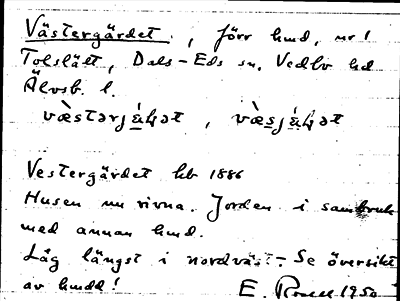 Västergärdet, förr hmd, nr 1
Tolslätt, Dals-Eds sn. Vedbo hd
Älvsb. l.
væ̀stərjá̤ꞗət, væ̀sjá̤ꞗət
Vestergärdet hb 1886
Husen nu rivna. Jorden i sambruk
med annan hmd.
Låg längst i nordväst - Se översikt
av hmdd! E. Rosell 1950